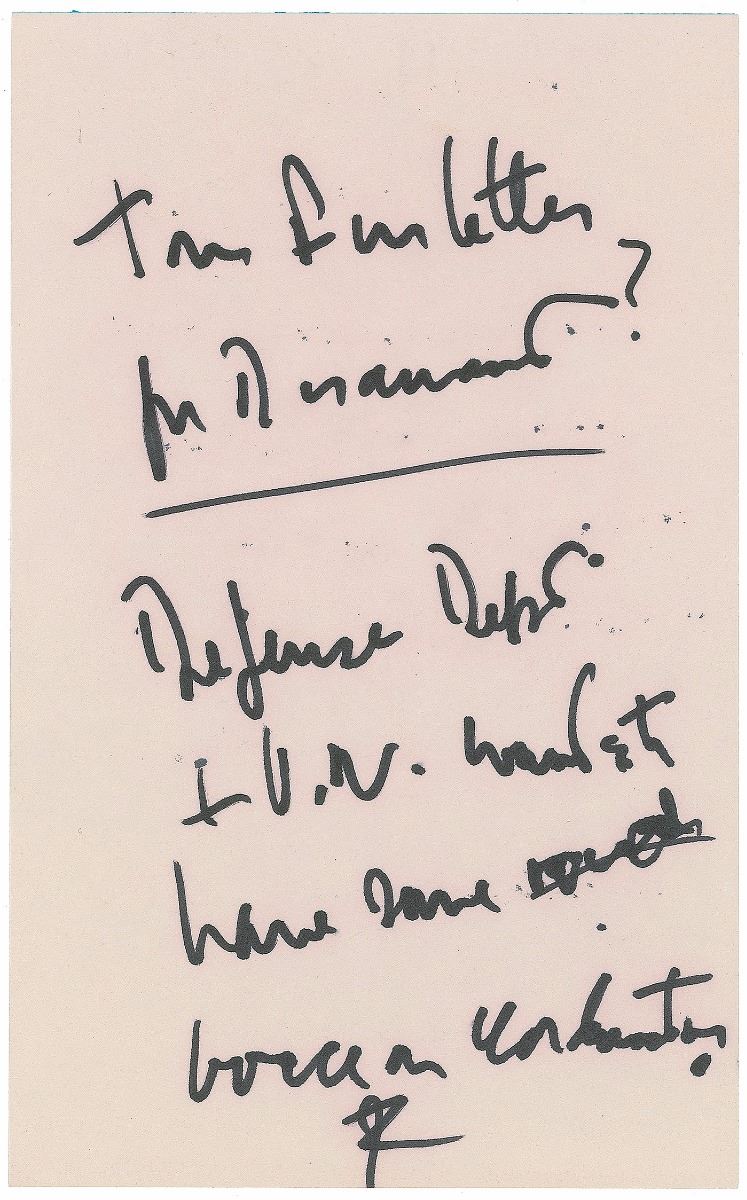 Tom Finletter
for Disarmament?
Defense Dept.
& U.N. wants to
have some
voice in